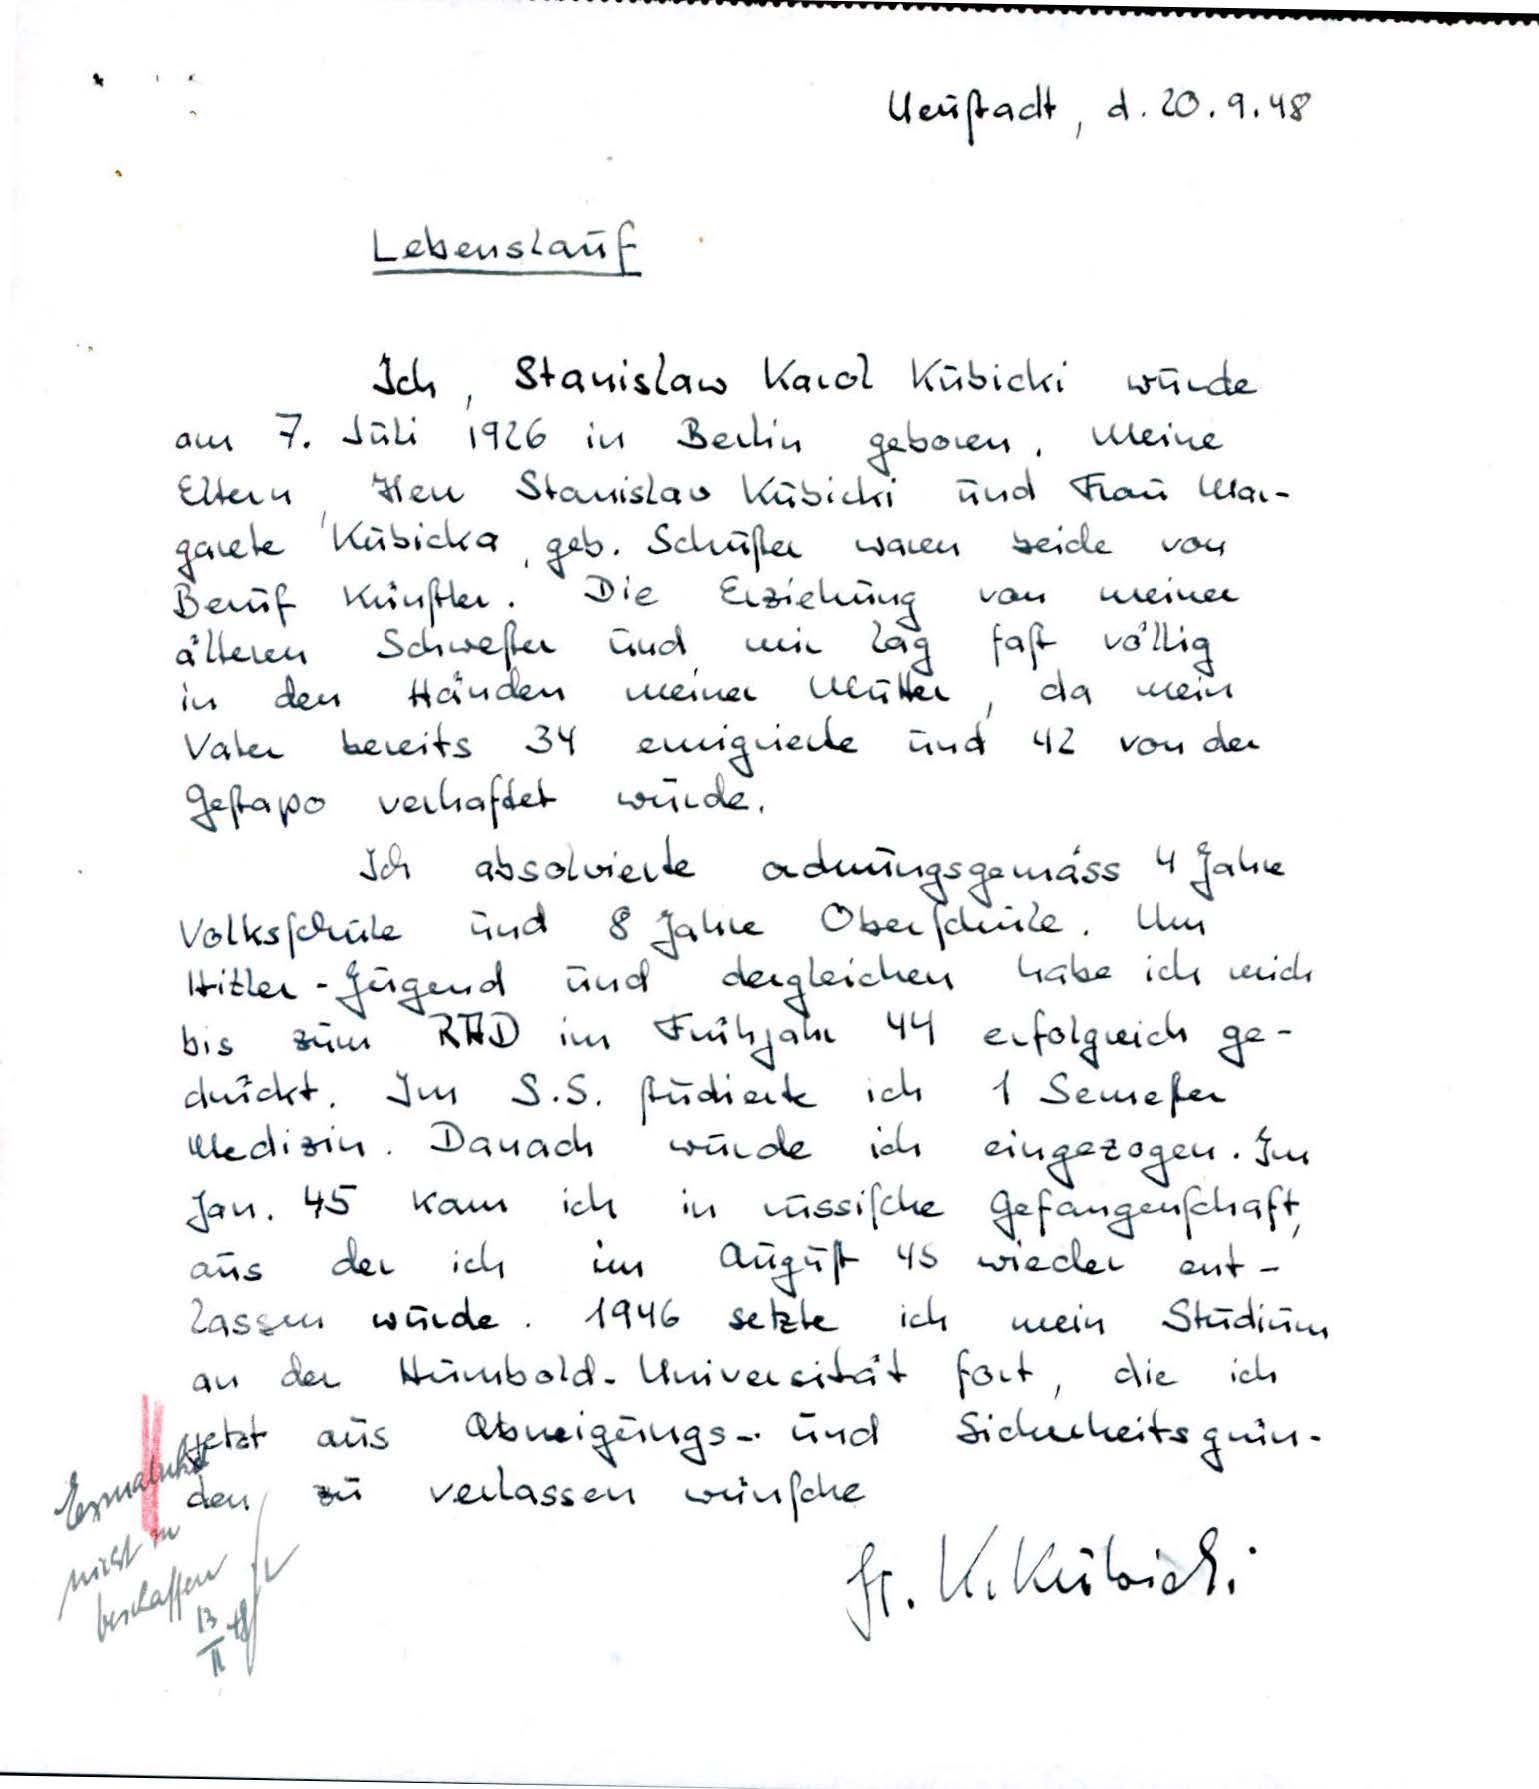 Neustadt, d. 20.9.48
Lebenslauf
Ich, Stanislaw Karol Kubicki wurde
am 7. Juli 1926 in Berlin geboren. Meine
Eltern, Herr Stanislaw Kubicki und Frau Mar-
garete Kubicka, geb. Schuster waren beide von
Beruf Künstler. Die Erziehung von meiner
älteren Schwester und mir lag fast völlig
in den Händen meiner Mutter, da mein
Vater bereits 34 emigrierte und 42 von der
Gestapo verhaftet wurde.
Ich absolvierte ordnungsgemäss 4 Jahre
Volksschule und 8 Jahre Oberschule. Um
Hitler-Jugend und dergleichen habe ich mich
bis zum RAD im Frühjahr 44 erfolgreich ge-
drückt. Im S.S. studierte ich 1 Semester
Medizin. Danach wurde ich eingezogen. Im
Jan. 45 kam ich in russische Gefangenschaft,
aus der ich im August 45 wieder ent-
lassen wurde. 1946 setzte ich mein Studium
an der Humbold-Universität fort, die ich
jetzt aus Abneigungs- und Sicherheitsgrün-
den zu verlassen wünsche
St. K. Kubicki
nicht zu
beschaffen
13
II 48